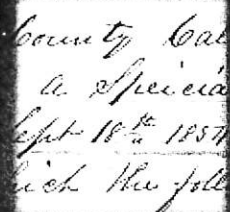 County Cal
a Speicia
Sept 18th 1857
hich the foll